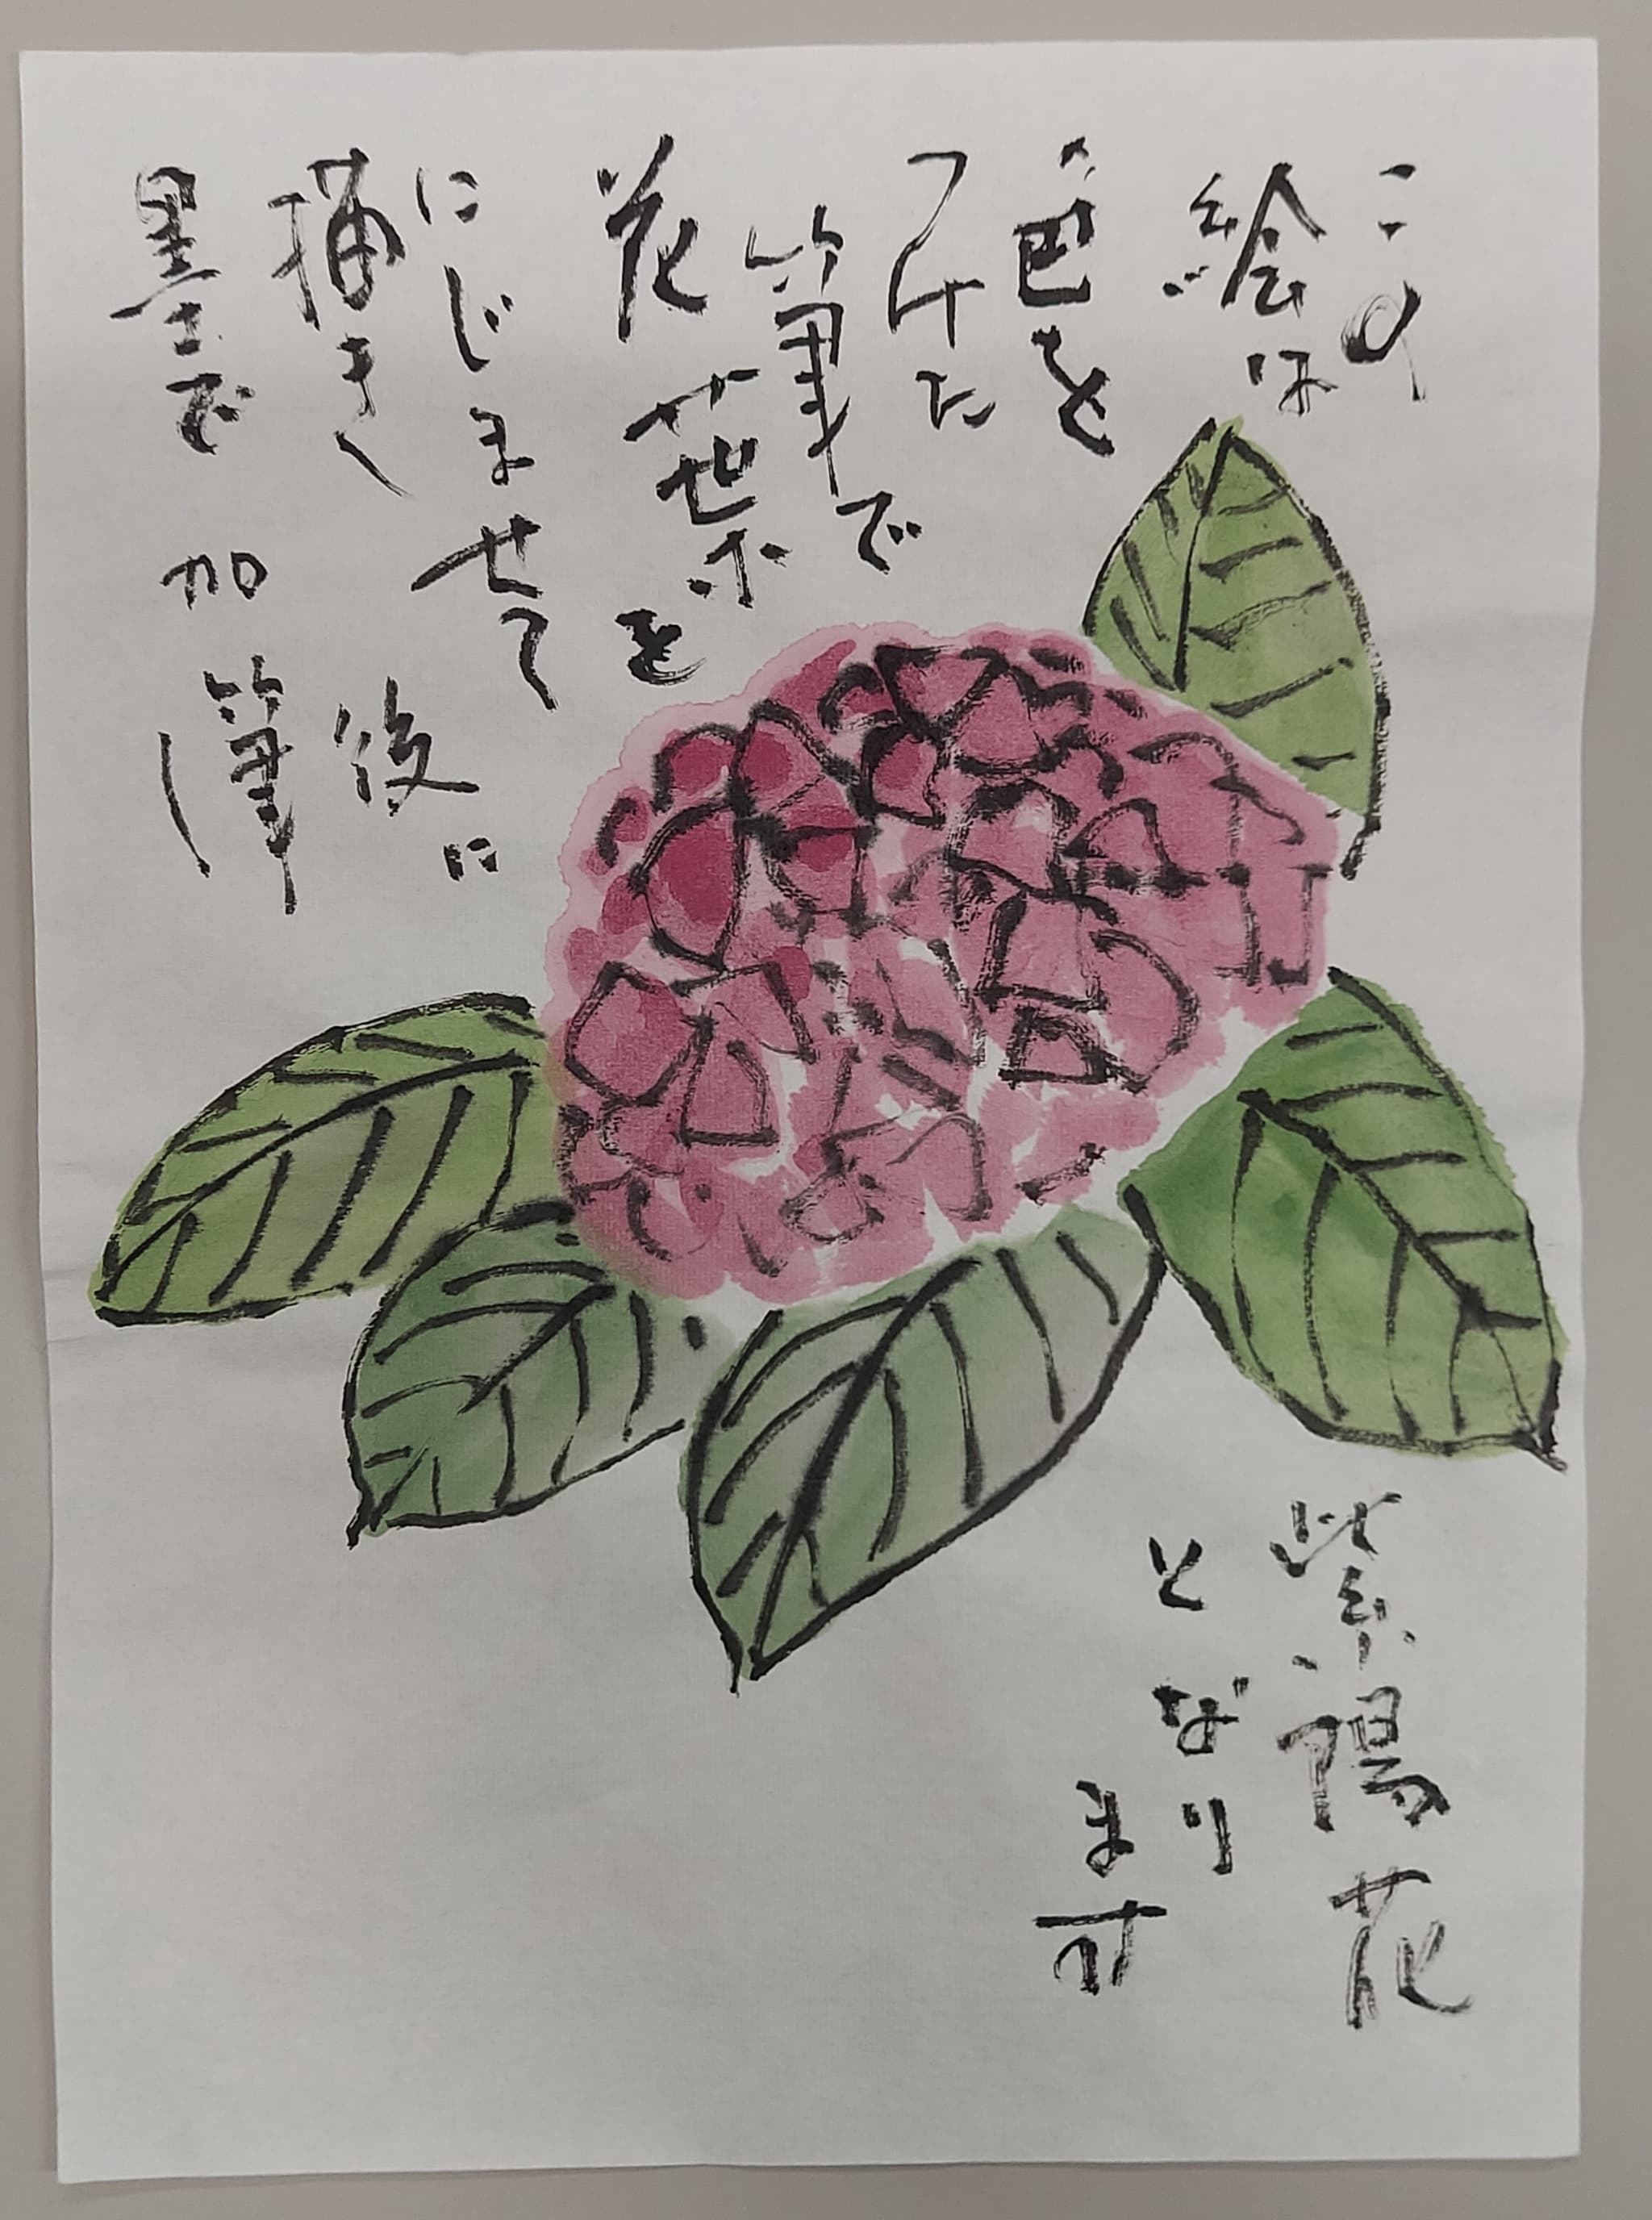 この
絵は
色を
つけた
筆で
花葉を
にじませて
描き、後に
墨で加筆し
紫陽花
となり
ます